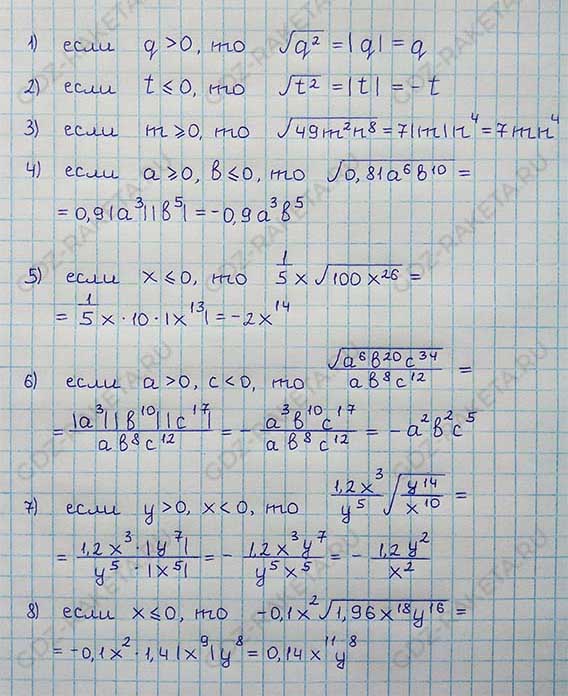 1) если q > 0, то √q² = |q| = q
2) если t ≤ 0, то √t² = |t| = -t
3) если m ≥ 0, то √49m²n⁸ = 7|m|n⁴ = 7mn⁴
4) если a ≥ 0, b ≤ 0, то √0,81a⁶b¹⁰ =
= 0,9|a³||b⁵| = -0,9a³b⁵
5) если x ≤ 0, то 1/5 x √100x²⁶ =
= 1/5 x · 10 · |x¹³| = -2x¹⁴
6) если a > 0, c < 0, то √a⁶b²⁰c³⁴ / ab⁸c¹² =
= |a³||b¹⁰||c¹⁷| / ab⁸c¹² = - a³b¹⁰c¹⁷ / ab⁸c¹² = -a²b²c⁵
7) если y > 0, x < 0, то 1,2x³ / y⁵ √y¹⁴ / x¹⁰ =
= 1,2x³ · |y⁷| / y⁵ · |x⁵| = - 1,2x³y⁷ / y⁵x⁵ = - 1,2y² / x²
8) если x ≤ 0, то -0,1x² √1,96x¹⁸y¹⁶ =
= -0,1x² · 1,4|x⁹|y⁸ = 0,14x¹¹y⁸
GDZ-RAKETA.RU